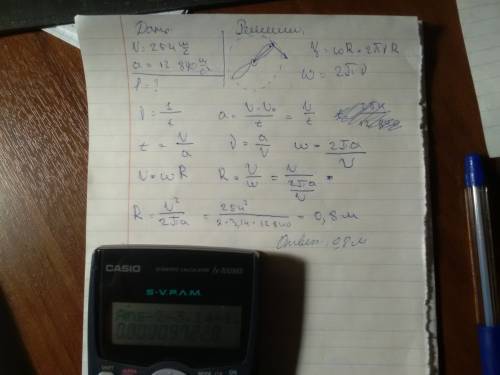 Дано:
V = 254 м/с
a = 12 840 м/с²
l = ?
Решение:
V = ωR = 2πνR
ω = 2πν
ν = 1/t
a = V - V₀ / t = V / t
t = V / a
ν = a / V
ω = 2πa / V
V = ωR
R = V / ω = V / 2πa / V =
R = V² / 2πa = 254² / 2 * 3,14 * 12840 = 0,8 м
Ответ: 0,8 м
CASIO
S-V.P.A.M.